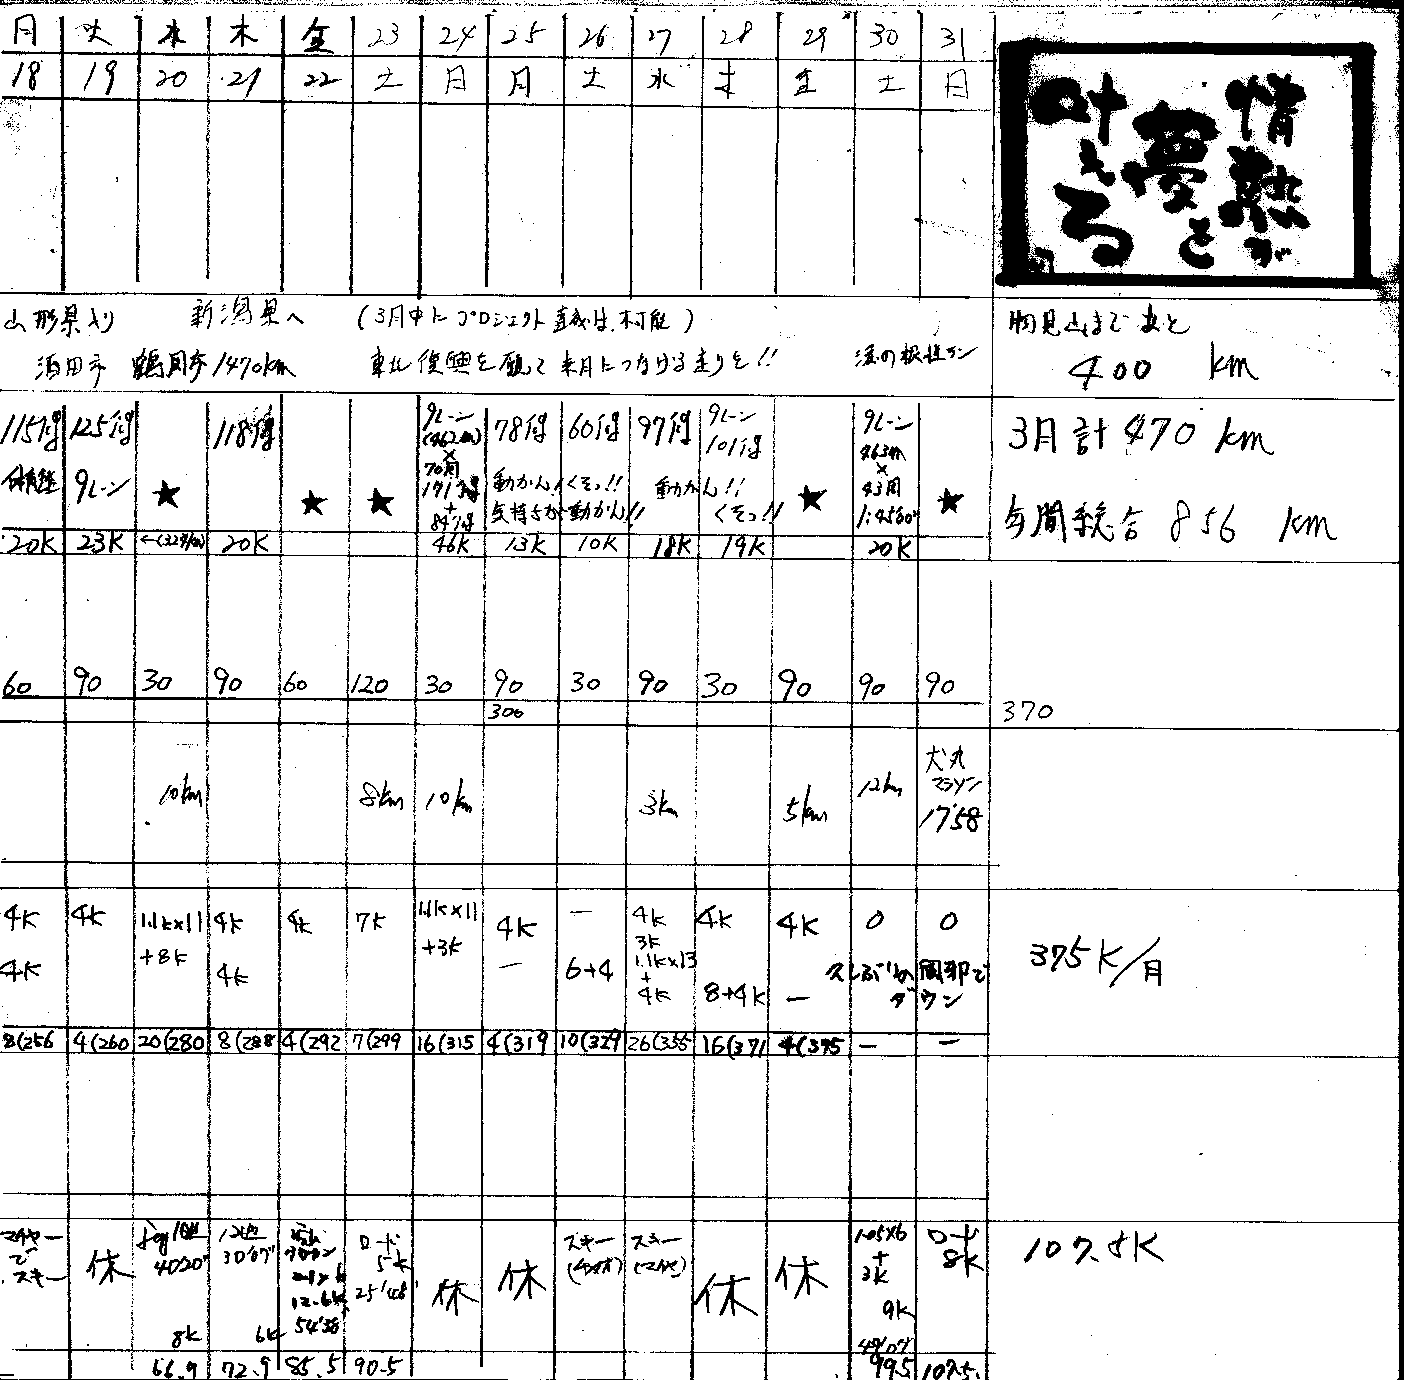 月 火 水 木 金 23 24 25 26 27 28 29 30 31
18 19 20 21 22 土 日 月 土 水 木 金 土 日
情熱が
夢を
叶える
山形県入り 新潟県へ (3月中に プロジェクト 達成は 不可能)
酒田市 鶴岡市 1470km 東北復興を願って 来月につなげる走りを!!
まで あと
400 km
115周 125周 118周 9レーン 78周 60周 97周 9レーン 9レーン
(462m) 101周 463m
× ×
70周 43周
9レーン ★ ★ ★ 171周 動かん! くそっ!! 動かん!! ★ 1:45'00" ★
+ 気持ちが 動かん!! くそっ!!
84周
20K 23K 20K 46K 13K 10K 18K 19K 20K
3月計 470 km
年間総合 856 km
60 90 30 90 60 120 30 90 30 90 30 90 90 90
300 370
10km 8km 10km 3km 5km 12km 犬丸
マラソン
17'58
4K 4K 1.1K×11 4K 4K 7K 1.1K×11 4K — 4K 4K 4K 0 0
+8K +3K 3K
4K 4K — 6+4 1.1K×13 8+4K — 久しぶりの 風邪で
+ ダウン
4K
375K/月
8(256 4(260 20(280 8(288 4(292 7(299 16(315 4(319 10(329 26(355 16(371 4(375 — —
スキー 休 40'20" 30'07" ロード 休 休 スキー スキー 休 休 1.05×6 ロード
5K + 8K
12.6K 25'48" 3K
8K 6K 54'38" 9K
66.9 72.9 85.5 90.5 99.5 107.5
107.5K